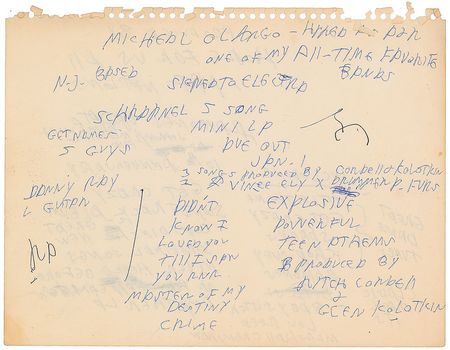 MICHEAL OLANGO - HIRED AS PAN
ONE OF MY ALL-TIME FAVORITE
BANDS
N-J- BASED SIGNED TO ELECTRA
SCHRAPNEL 5 SONG
GET NAMES MINI LP
5 GUYS DUE OUT
JAN. 1
3 SONGS PRODUCED BY CORBETT & KOLOTKIN
2 VINCE ELY X DRUMMER P. FURS
DANNY RAY
L GUTAR
DIDN'T
KNOW I
LOVED YOU
TILL I SAW
YOU RNR
MASTER OF MY
DESTINY
CRIME
EXPLOSIVE
POWERFUL
TEEN ATHEMS
PRODUCED BY
MITCH CORBETT
&
GLEN KOLOTKIN